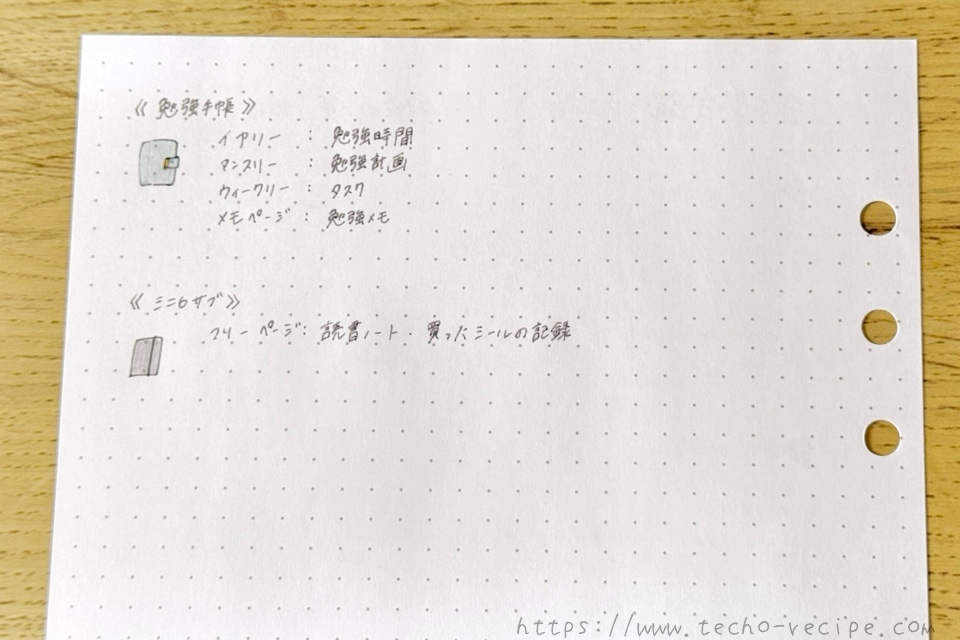 《勉強手帳》
イヤリー : 勉強時間
マンスリー : 勉強計画
ウィークリー : タスク
メモページ : 勉強メモ
《ミニ6サブ》
フリーページ: 読書ノート・買ったシールの記録
https://www.techo-recipe.com